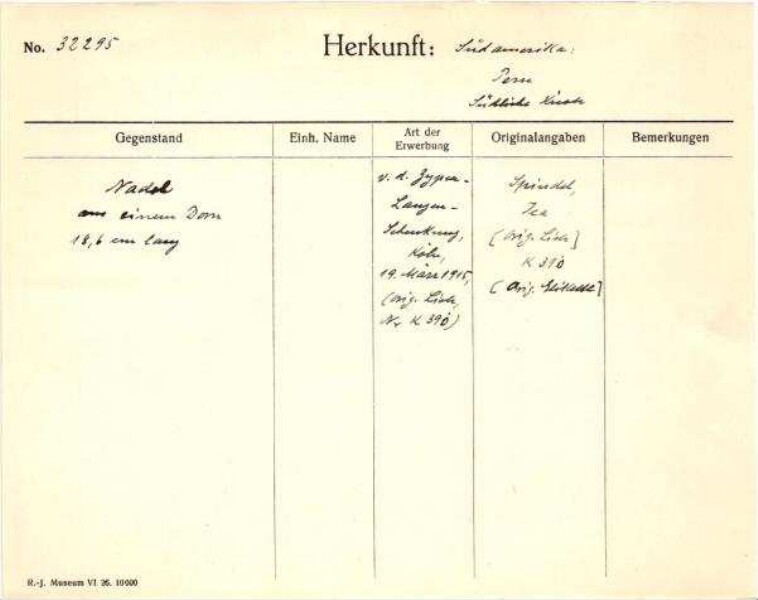 No. 32295
Herkunft: Südamerika:
Peru
Südliche Küste
Gegenstand
Einh. Name
Art der
Erwerbung
Originalangaben
Bemerkungen
Nadel
aus einem Dorn
18,6 cm lang
v. d. Zypen-
Langen-
Schenkung,
Köln,
19. März 1915,
(Orig. Liste,
Nr K 390)
Spindel,
Ica
[Orig. Liste]
K 390
[Orig. Etikett]
R.-J. Museum VI. 26. 10000